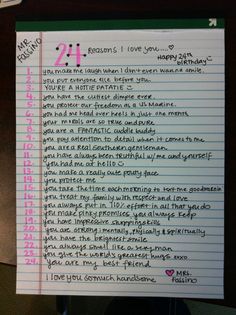 MR. FASSINO
24 Reasons I love you....♡
Happy 24th birthday!
1. you make me laugh when I don't even wanna smile.
2. you put everyone else before you.
3. YOU'RE A HOTTIE PATATIE ☺
4. you have the cutest dimple ever.
5. you protect our freedom as a US Marine.
6. you had me head over heels in just one month.
7. your morals are so true and pure.
8. you are a FANTASTIC cuddle buddy
9. you pay attention to detail when it comes to me
10. you are a real southern gentleman.
11. you have always been truthful w/ me and yourself
12. you had me at hello ☺
13. you make a really cute pouty face
14. you protect me
15. you take the time each morning to text me goodmornin
16. you treat my family with respect and love
17. you always put in 110% effort in all that you do
18. you make pinky promises you always keep
19. you have impressive slurping skills
20. you are strong: mentally, physically & spiritually
21. you have the brightest smile
22. you always smell like a sexy man
23. you give the world's greatest hugs xoxo
24. you are my best friend
I love you so much handsome
♡ MRS. Fassino